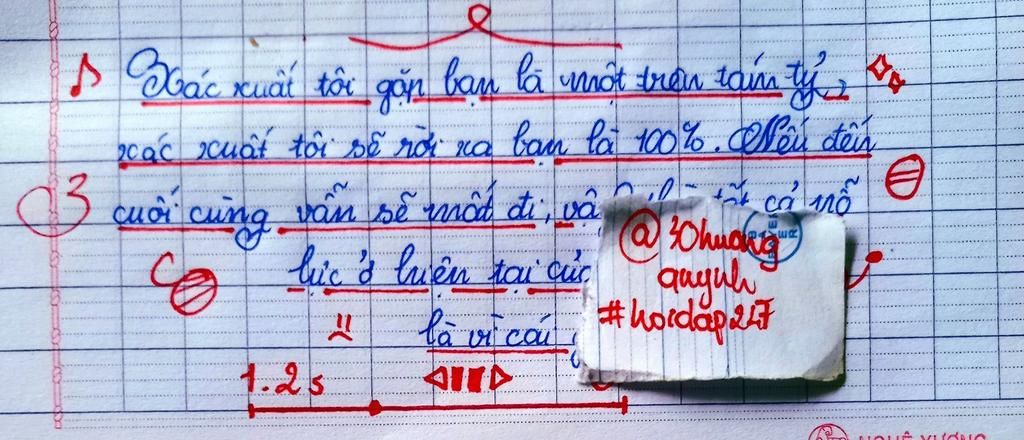 Xác xuất tôi gặp bạn là một trên tám tỷ,
xác xuất tôi sẽ rời xa bạn là 100%. Nếu đến
3
cuối cùng vẫn sẽ mất đi, cả nỗ
lực ở hiện tại
là vì cái
@30huong
quynh
#hoidap247
1.2s